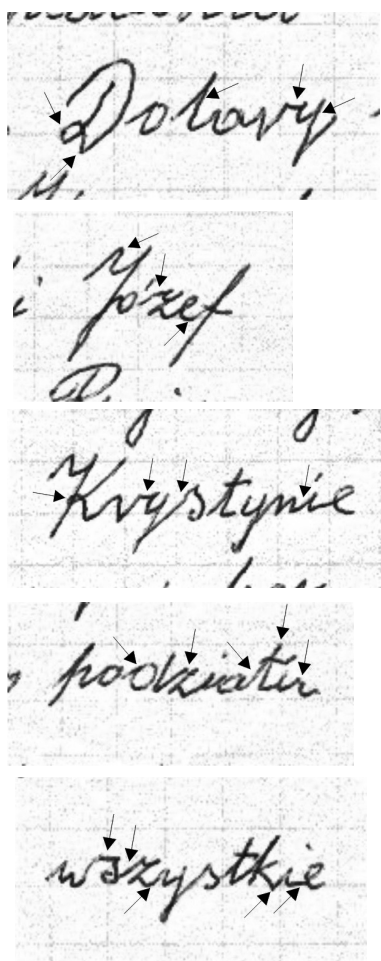 Dolary
Józef
Krystynie
podziału
wszystkie